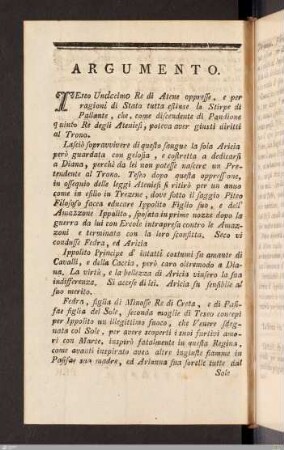 ARGUMENTO.
TEseo Undecimo Re di Atene oppresse, e per
ragioni di Stato tutta estinse la Stirpe di
Pallante, che, come discendente di Pandione
quinto Re degli Ateniesi, poteva aver giusti diritti
al Trono.
Lasciò sopravvivere di questo sangue la sola Aricia
però guardata con gelosia, e costretta a dedicarsi
a Diana, perchè da lei non potesse nascere un Pre-
tendente al Trono. Teseo dopo questa oppressione,
in ossequio delle leggi Ateniesi si ritirò per un anno
come in esilio in Trezene, dove sotto il saggio Pitteo
Filosofo facea educare Ippolito Figlio suo, e dell'
Amazzone Ippolita, sposata in prime nozze dopo la
guerra da lui con Ercole intrapresa contro le Amaz-
zoni e terminata con la loro sconfitta. Seco vi
condusse Fedra, ed Aricia
Ippolito Principe d' intatti costumi fu amante di
Cavalli, e della Caccia, però caro oltremodo a Dia-
na. La virtù, e la bellezza di Aricia vinsero la sua
indifferenza. Si accese di lei. Aricia fu sensibile al
suo merito.
Fedra, figlia di Minosse Re di Creta, e di Pasi-
fae figlia del Sole, seconda moglie di Teseo concepì
per Ippolito un illegittimo fuoco, che Venere sdeg-
nata col Sole, per aver scoperti i suoi furtivi amo-
ri con Marte, inspirò fatalmente in questa Regina,
come avanti inspirato avea altre ingiuste fiamme in
Pasifae sua madre, ed Arianna sua sorella tutte dal
Sole